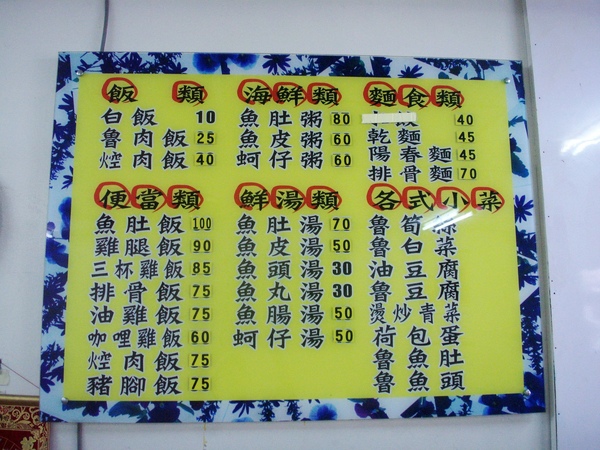 飯類
白飯 10
魯肉飯 25
焢肉飯 40
海鮮類
魚肚粥 80
魚皮粥 60
蚵仔粥 60
麵食類
40
乾麵 45
陽春麵 45
排骨麵 70
便當類
魚肚飯 100
雞腿飯 90
三杯雞飯 85
排骨飯 75
油雞飯 75
咖哩雞飯 60
焢肉飯 75
豬腳飯 75
鮮湯類
魚肚湯 70
魚皮湯 50
魚頭湯 30
魚丸湯 30
魚腸湯 50
蚵仔湯 50
各式小菜
魯筍絲
魯白菜
油豆腐
魯豆腐
燙炒青菜
荷包蛋
魯魚肚
魯魚頭